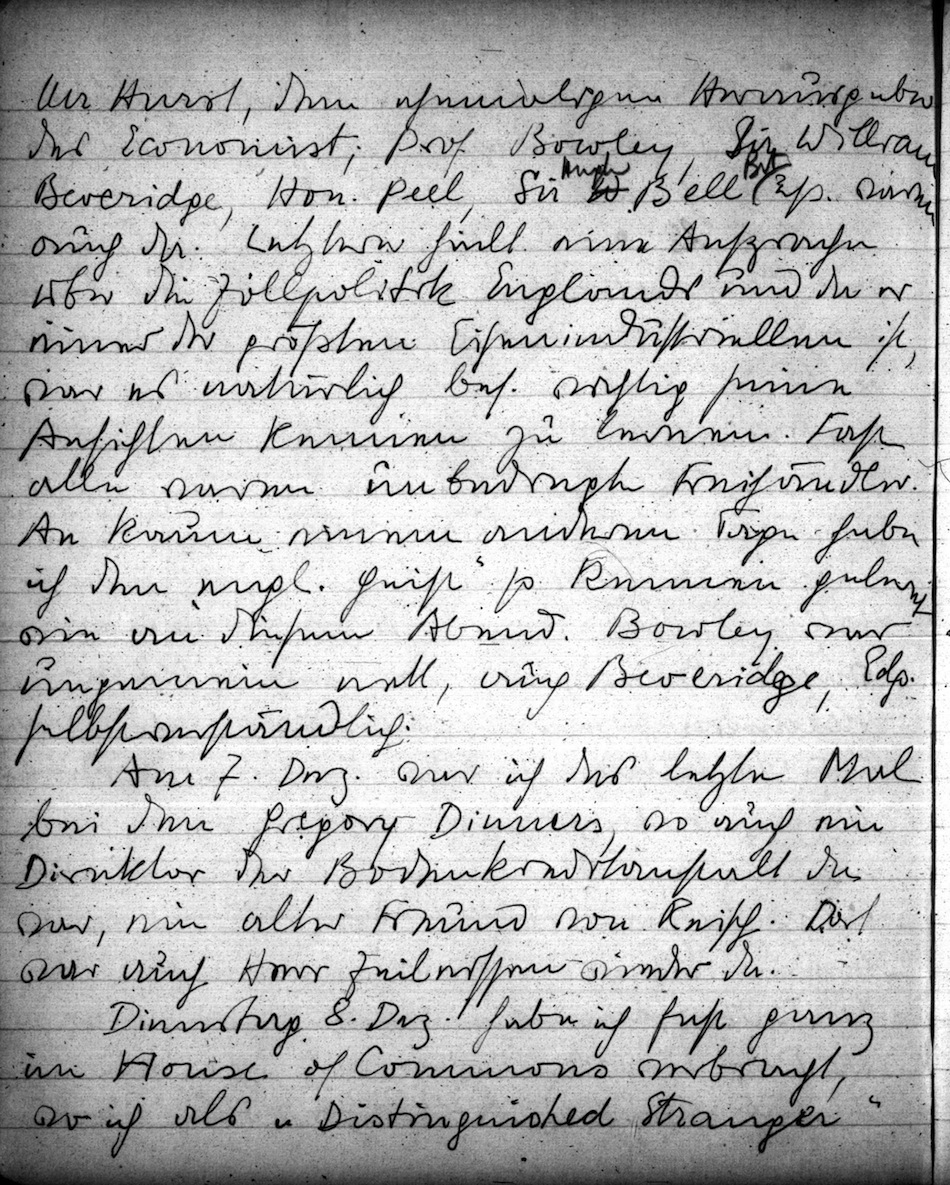 Mr Hurst, dem ehemaligen Herausgeber
des Economist, Prof. Bowley, Sir William
Beveridge, Hon. Peel, Sir Hugh Bell (Bt) etc. waren
auch da. Letzterer hielt eine Ansprache
über die Zollpolitik Englands und da er
einer der größten Eisenindustriellen ist,
war es natürlich bes. wichtig seine
Ansichten kennen zu lernen. Fast
alle waren unbedingte Freihändler.
An kaum einem anderen Tage habe
ich den engl. Geist" so kennen gelernt
wie an diesem Abend. Bowley war
ungemein nett, auch Beveridge, Edg.
selbstverständlich.
Am 7. Dez. war ich das letzte Mal
bei den Gregory Dinners, wo auch ein
Direktor der Bodenkreditanstalt da
war, ein alter Freund von Reisch. Dort
war auch Herr Zeilnissen wieder da.
Dienstag 8. Dez. habe ich fast ganz
im House of Commons verbracht,
wo ich als "Distinguished Stranger"